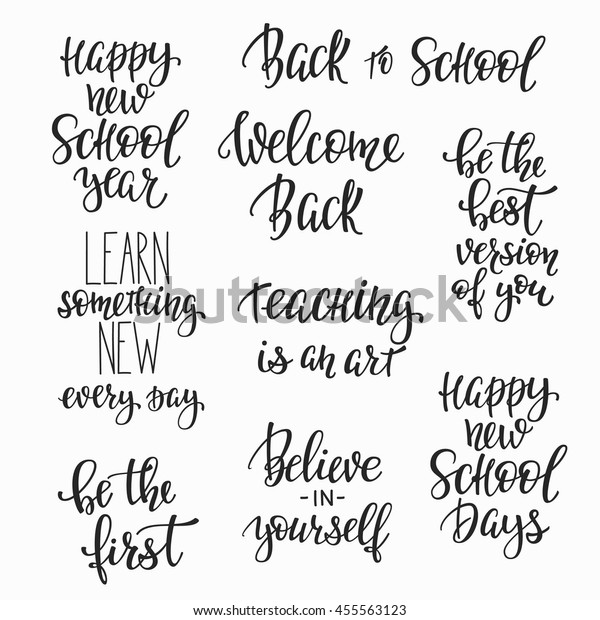 Happy
new
School
year
Back to School
Welcome
Back
be the
best
version
of you
LEARN
something
NEW
every day
teaching
is an art
Happy
new
School
Days
be the
first
Believe
-IN-
yourself
shutterstock® IMAGE ID: 455563123
www.shutterstock.com · 455563123